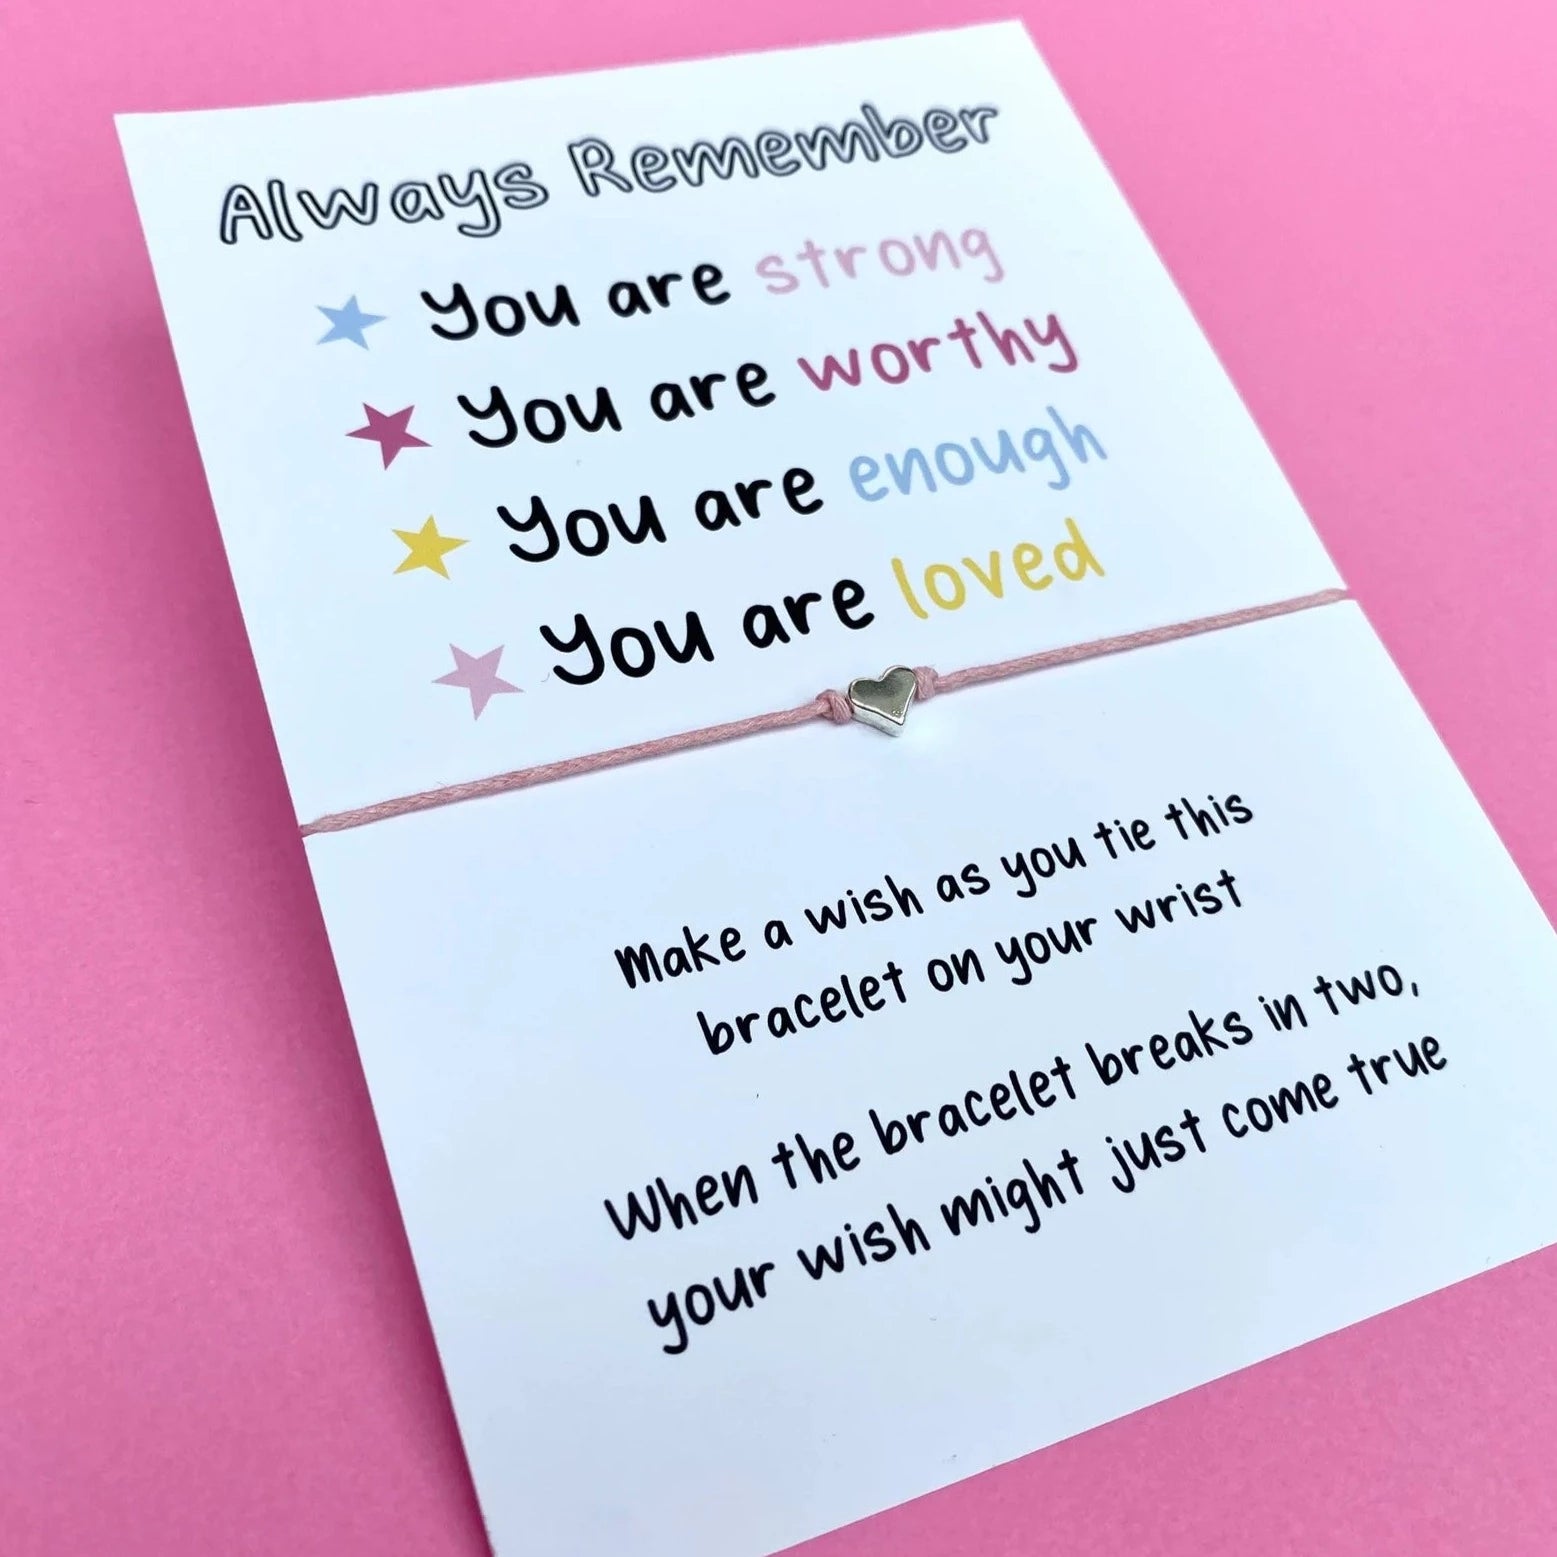 Always Remember
You are strong
You are worthy
You are enough
You are loved
Make a wish as you tie this
bracelet on your wrist
When the bracelet breaks in two,
your wish might just come true